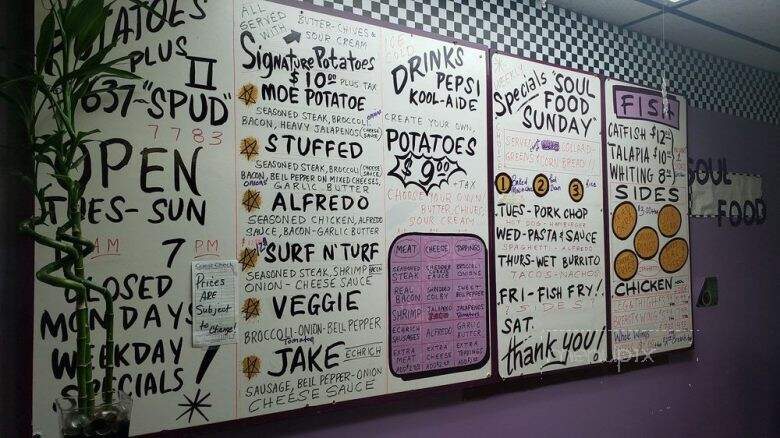 POTATOES
PLUS II
637-"SPUD"
7783
OPEN
TUES-SUN
AM 7 PM
CLOSED
MONDAYS
WEEKDAY
SPECIALS!
Guest Check
Prices
ARE
Subject
to change!
ALL
SERVED
WITH
BUTTER-CHIVES &
SOUR CREAM
Signature Potatoes
$10.00 PLUS TAX
MOE POTATOE
SEASONED STEAK, BROCCOLI
BACON, HEAVY JALAPENOS CHEESE SAUCE
STUFFED
SEASONED STEAK, BROCCOLI
BACON, BELL PEPPER ON MIXED CHEESES,
ONIONS GARLIC BUTTER
ALFREDO
SEASONED CHICKEN, ALFREDO
SAUCE, BACON-GARLIC BUTTER
SURF N' TURF
SEASONED STEAK, SHRIMP BACON
ONION-CHEESE SAUCE
VEGGIE
BROCCOLI-ONION-BELL PEPPER
Tomatoes
JAKE ECHRICH
SAUSAGE, BELL PEPPER-ONION
CHEESE SAUCE
ICE
COLD
DRINKS
PEPSI
KOOL-AIDE
CREATE YOUR OWN
POTATOES
$9.00 + TAX
CHOOSE YOUR OWN
BUTTER, CHIVES,
SOUR CREAM
MEAT CHEESE TOPPINGS
SEASONED STEAK CHEDDAR CHEESE SAUCE BROCCOLI ONIONS
REAL BACON SHREDDED COLBY SWEET BELL PEPPER
SHRIMP JALAPENOS TOMATOES
ECHRICH SAUSAGES ALFREDO GARLIC BUTTER
EXTRA MEAT EXTRA CHEESE EXTRA TOPPINGS
Specials "SOUL
FOOD
SUNDAY"
SERVED COLLARD
GREENS & CORN BREAD!!
1 2 3
TUES-PORK CHOP
HOT DOG-HAMBURGER
WED-PASTA & SAUCE
SPAGHETTI-ALFREDO
THURS-WET BURRITO
TACOS-NACHOS
FRI-FISH FRY!
SIDES
SAT.
thank you!
FISH
CATFISH $12
TALAPIA $10
WHITING 8
SIDES
CHICKEN
Whole Wing
SOUL
FOOD